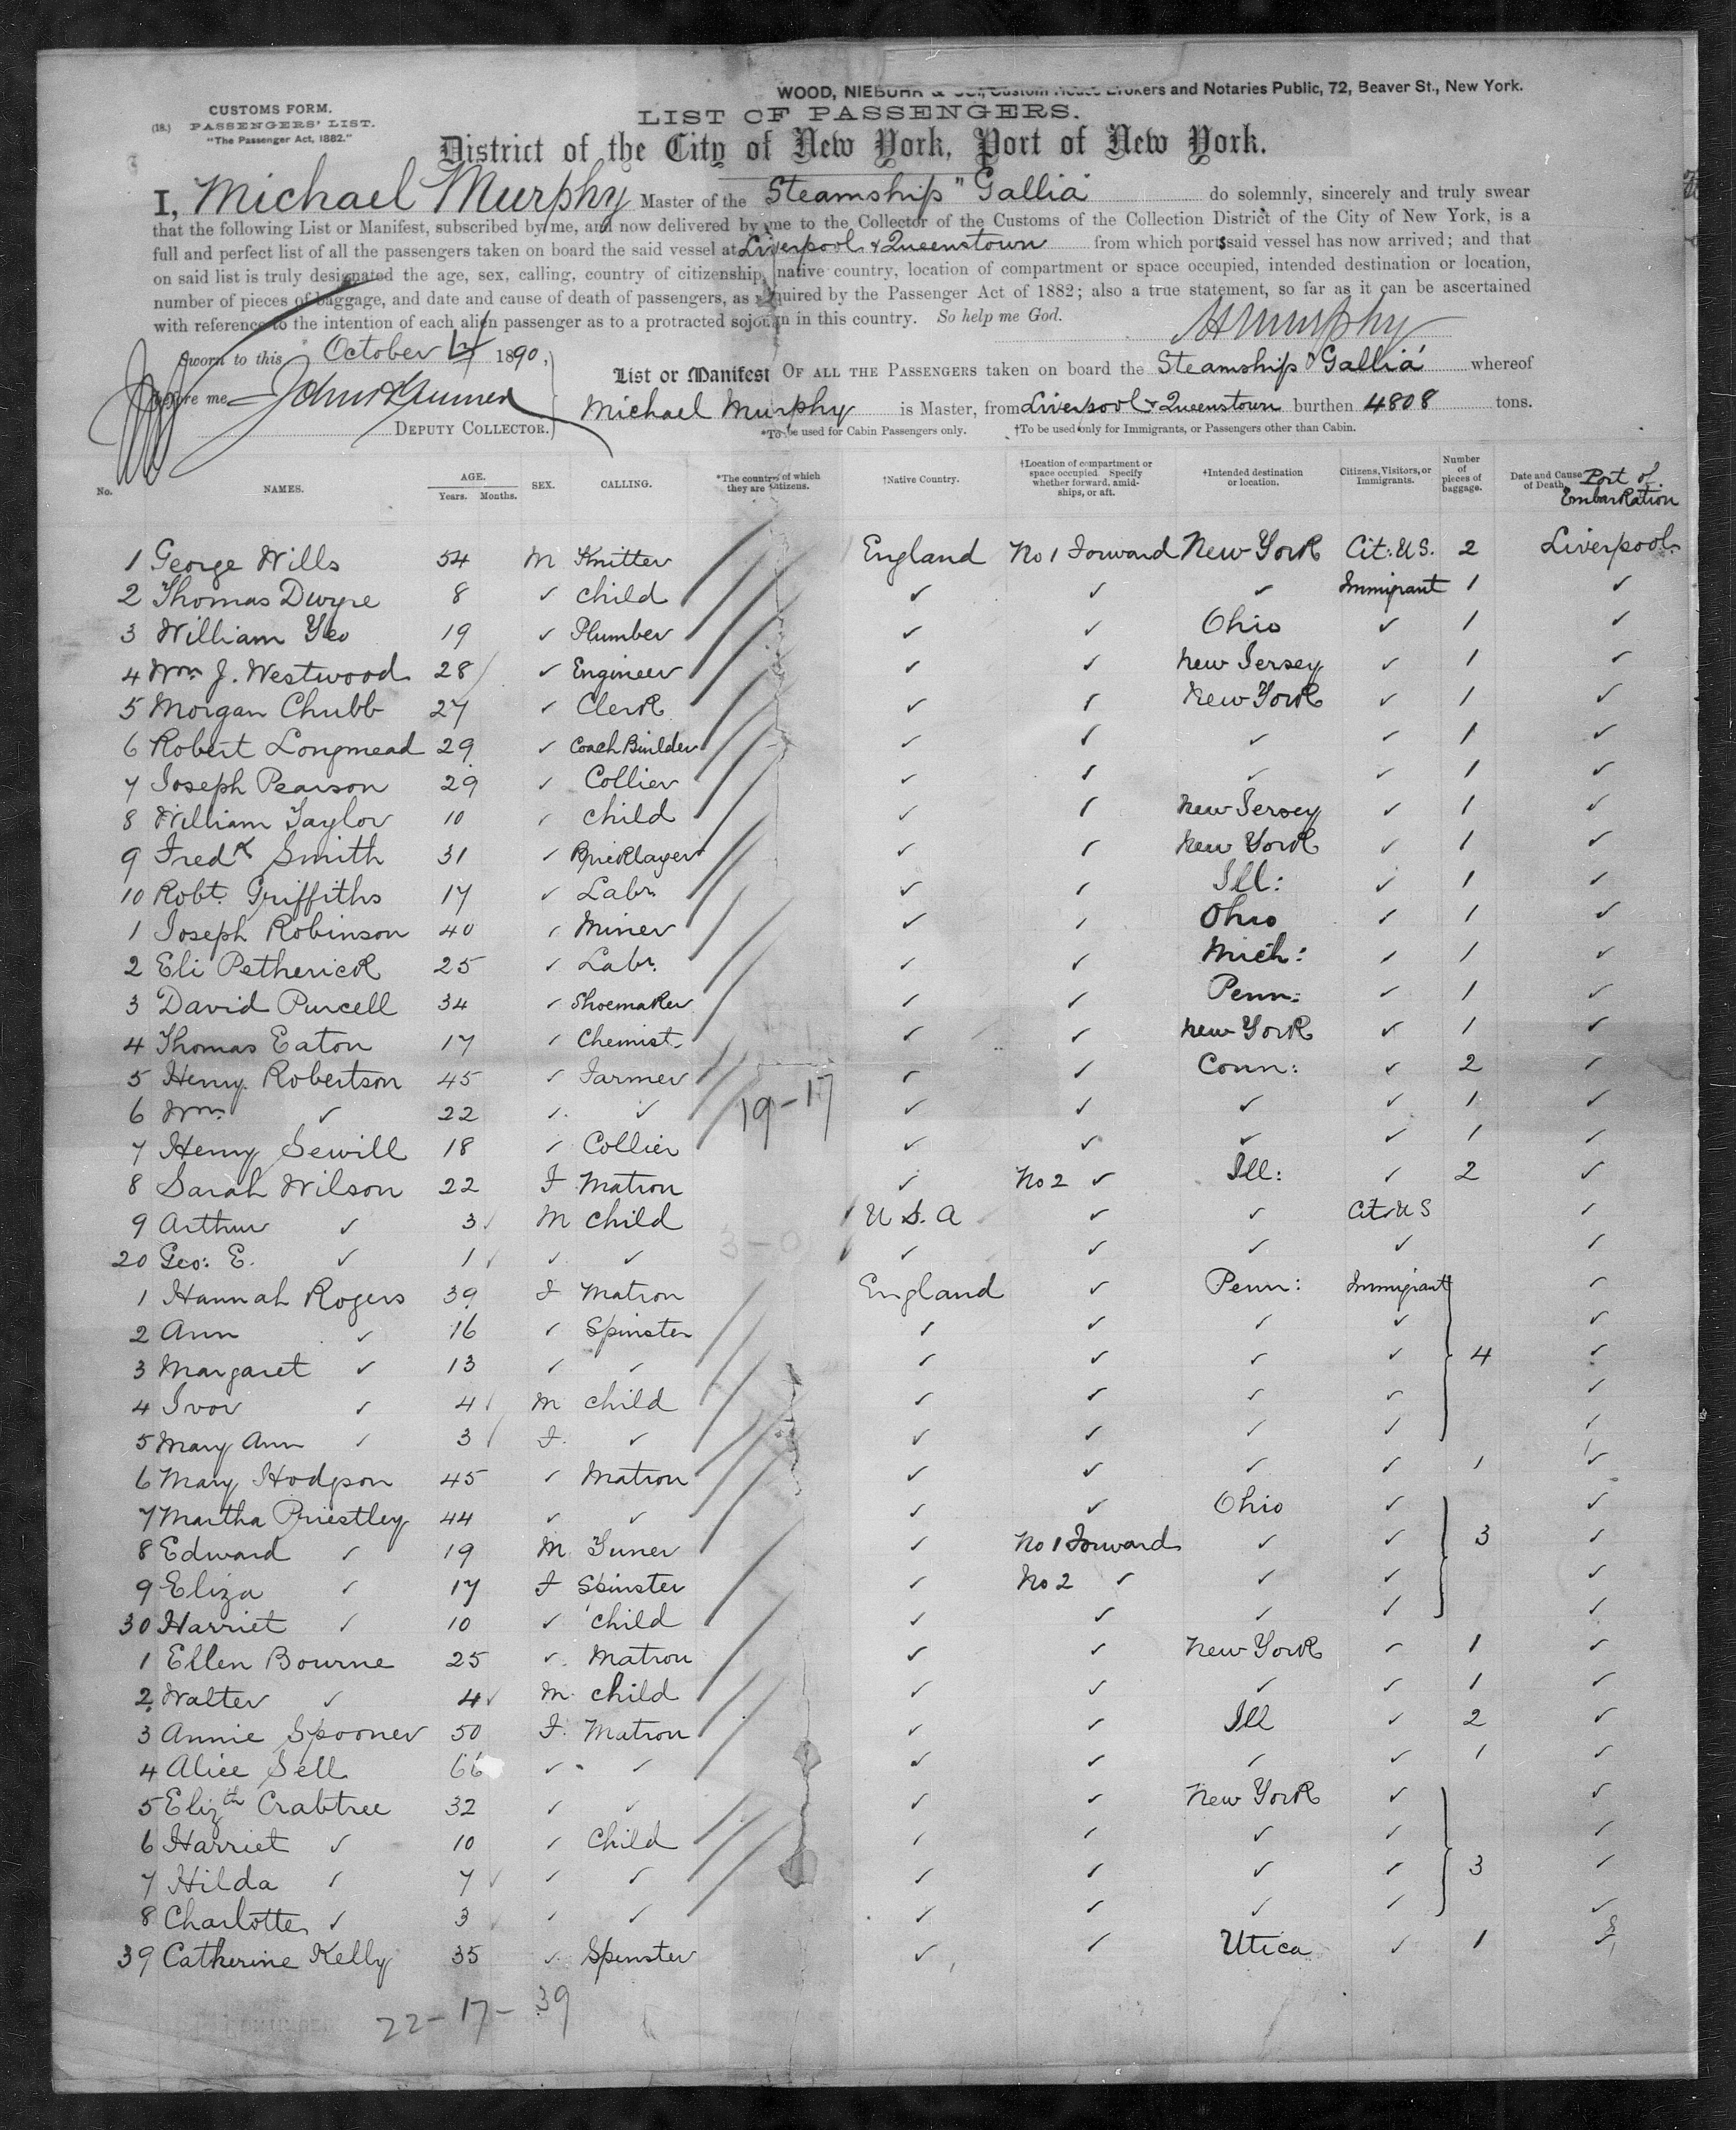 WOOD, NIEBUHR & Co., Custom House Brokers and Notaries Public, 72, Beaver St., New York.
CUSTOMS FORM.
(18.) PASSENGERS' LIST.
"The Passenger Act, 1882."
LIST OF PASSENGERS.
District of the City of New York, Port of New York.
I, Michael Murphy Master of the Steamship "Gallia" do solemnly, sincerely and truly swear
that the following List or Manifest, subscribed by me, and now delivered by me to the Collector of the Customs of the Collection District of the City of New York, is a
full and perfect list of all the passengers taken on board the said vessel at Liverpool & Queenstown from which ports said vessel has now arrived; and that
on said list is truly designated the age, sex, calling, country of citizenship, native country, location of compartment or space occupied, intended destination or location,
number of pieces of baggage, and date and cause of death of passengers, as required by the Passenger Act of 1882; also a true statement, so far as it can be ascertained
with reference to the intention of each alien passenger as to a protracted sojourn in this country. So help me God.
Murphy
Sworn to this October 1890,
before me
DEPUTY COLLECTOR.
List or Manifest OF ALL THE PASSENGERS taken on board the Steamship "Gallia" whereof
Michael Murphy is Master, from Liverpool & Queenstown burthen 4808 tons.
*To be used for Cabin Passengers only. †To be used only for Immigrants, or Passengers other than Cabin.
No. NAMES. AGE. Years. Months. SEX. CALLING. *The country of which they are Citizens. †Native Country. †Location of compartment or space occupied. Specify whether forward, amidships, or aft. †Intended destination or location. Citizens, Visitors, or Immigrants. Number of pieces of baggage. Date and Cause of Death. Port of Embarkation
1 George Wills 54 M Knitter England No 1 Forward New York Cit: U.S. 2 Liverpool
2 Thomas Dwyre 8 ✓ child ✓ ✓ ✓ Immigrant 1 ✓
3 William Yeo 19 ✓ Plumber ✓ ✓ Ohio ✓ 1 ✓
4 Wm J. Westwood 28 ✓ Engineer ✓ ✓ New Jersey ✓ 1 ✓
5 Morgan Chubb 27 ✓ Clerk ✓ ✓ New York ✓ 1 ✓
6 Robert Longmead 29 ✓ Coach Builder ✓ ✓ ✓ ✓ 1 ✓
7 Joseph Pearson 29 ✓ Collier ✓ ✓ ✓ ✓ 1 ✓
8 William Taylor 10 ✓ child ✓ ✓ New Jersey ✓ 1 ✓
9 Fredk Smith 31 ✓ Bricklayer ✓ ✓ New York ✓ 1 ✓
10 Robt. Griffiths 17 ✓ Labr. ✓ ✓ Ill: ✓ 1 ✓
1 Joseph Robinson 40 ✓ Miner ✓ ✓ Ohio ✓ 1 ✓
2 Eli Petherick 25 ✓ Labr. ✓ ✓ Mich: ✓ 1 ✓
3 David Purcell 34 ✓ Shoemaker ✓ ✓ Penn: ✓ 1 ✓
4 Thomas Eaton 17 ✓ Chemist ✓ ✓ New York ✓ 1 ✓
5 Henry Robertson 45 ✓ Farmer ✓ ✓ Conn: ✓ 2 ✓
6 Wm. ✓ 22 ✓ ✓ 19-17 ✓ ✓ ✓ ✓ 1 ✓
7 Henry Sewill 18 ✓ Collier ✓ ✓ ✓ ✓ 1 ✓
8 Sarah Wilson 22 F Matron ✓ No 2 ✓ Ill: ✓ 2 ✓
9 Arthur ✓ 3 ✓ M child U S. A ✓ ✓ Cit U S ✓
20 Geo: E. ✓ 1 ✓ ✓ ✓ 3-0 ✓ ✓ ✓ ✓ ✓
1 Hannah Rogers 39 F Matron England ✓ Penn: Immigrant ✓
2 Ann ✓ 16 ✓ Spinster ✓ ✓ ✓ ✓ ✓
3 Margaret ✓ 13 ✓ ✓ ✓ ✓ ✓ ✓ 4 ✓
4 Ivor ✓ 4 ✓ M child ✓ ✓ ✓ ✓ ✓
5 Mary Ann ✓ 3 ✓ F. ✓ ✓ ✓ ✓ ✓ ✓
6 Mary Hodgson 45 ✓ Matron ✓ ✓ ✓ ✓ 1 ✓
7 Martha Priestley 44 ✓ ✓ ✓ ✓ Ohio ✓ ✓
8 Edward ✓ 19 M Tuner ✓ No 1 Forward ✓ ✓ 3 ✓
9 Eliza ✓ 17 F Spinster ✓ No 2 ✓ ✓ ✓ ✓
30 Harriet ✓ 10 ✓ child ✓ ✓ ✓ ✓ ✓
1 Ellen Bourne 25 ✓ Matron ✓ ✓ New York ✓ 1 ✓
2 Walter ✓ 4 ✓ M. child ✓ ✓ ✓ ✓ 1 ✓
3 Annie Spooner 50 F. Matron ✓ ✓ Ill ✓ 2 ✓
4 Alice Sell 66 ✓ ✓ ✓ ✓ ✓ ✓ 1 ✓
5 Elizth Crabtree 32 ✓ ✓ ✓ ✓ New York ✓ ✓
6 Harriet ✓ 10 ✓ Child ✓ ✓ ✓ ✓ ✓
7 Hilda ✓ 7 ✓ ✓ ✓ ✓ ✓ ✓ ✓ 3 ✓
8 Charlotte ✓ 3 ✓ ✓ ✓ ✓ ✓ ✓ ✓
39 Catherine Kelly 35 ✓ Spinster ✓ ✓ Utica ✓ 1 ✓
22-17-39